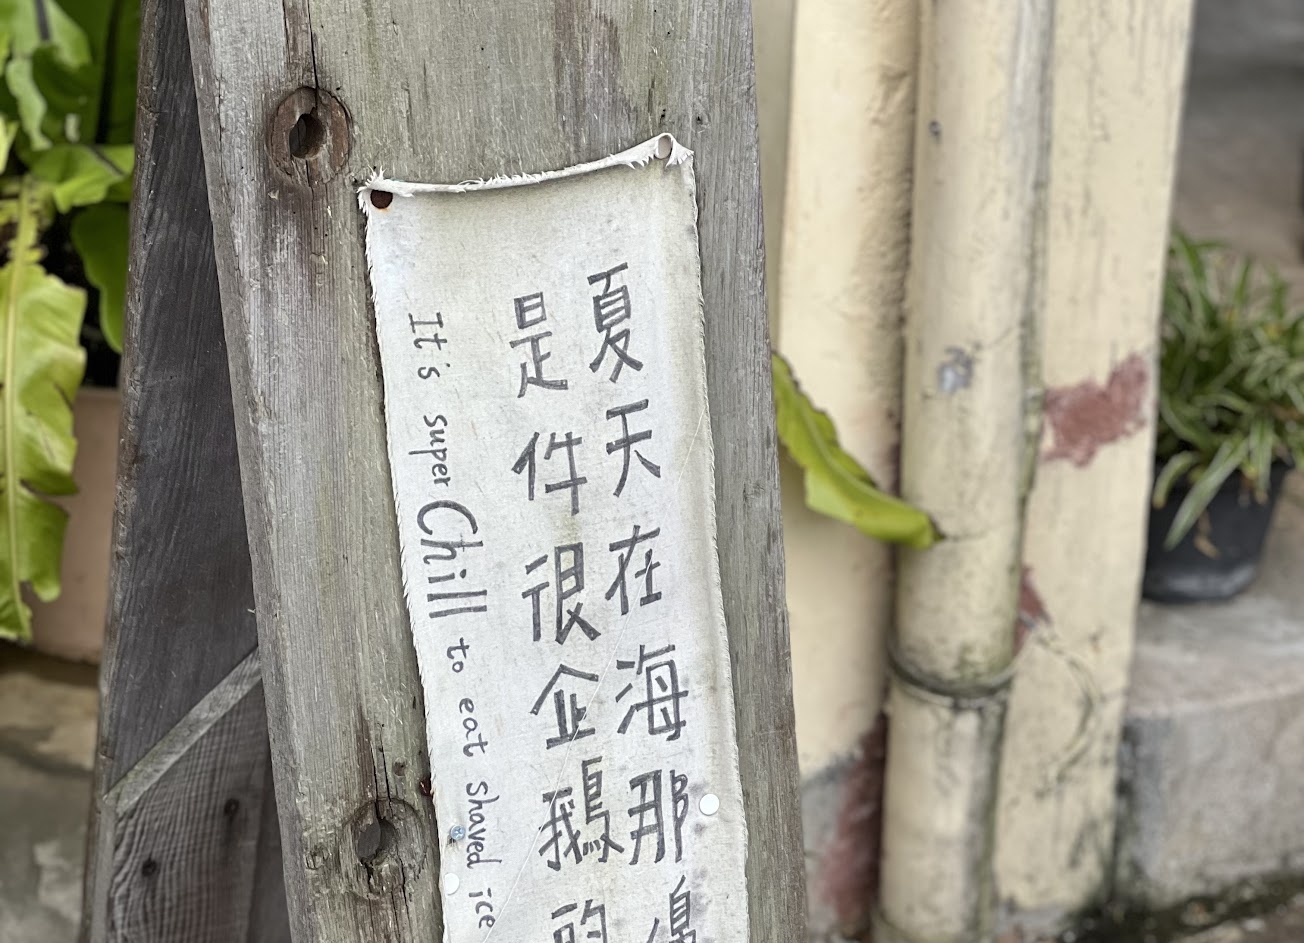 夏天在海那邊
是件很企鵝的
It's super Chill to eat shaved ice